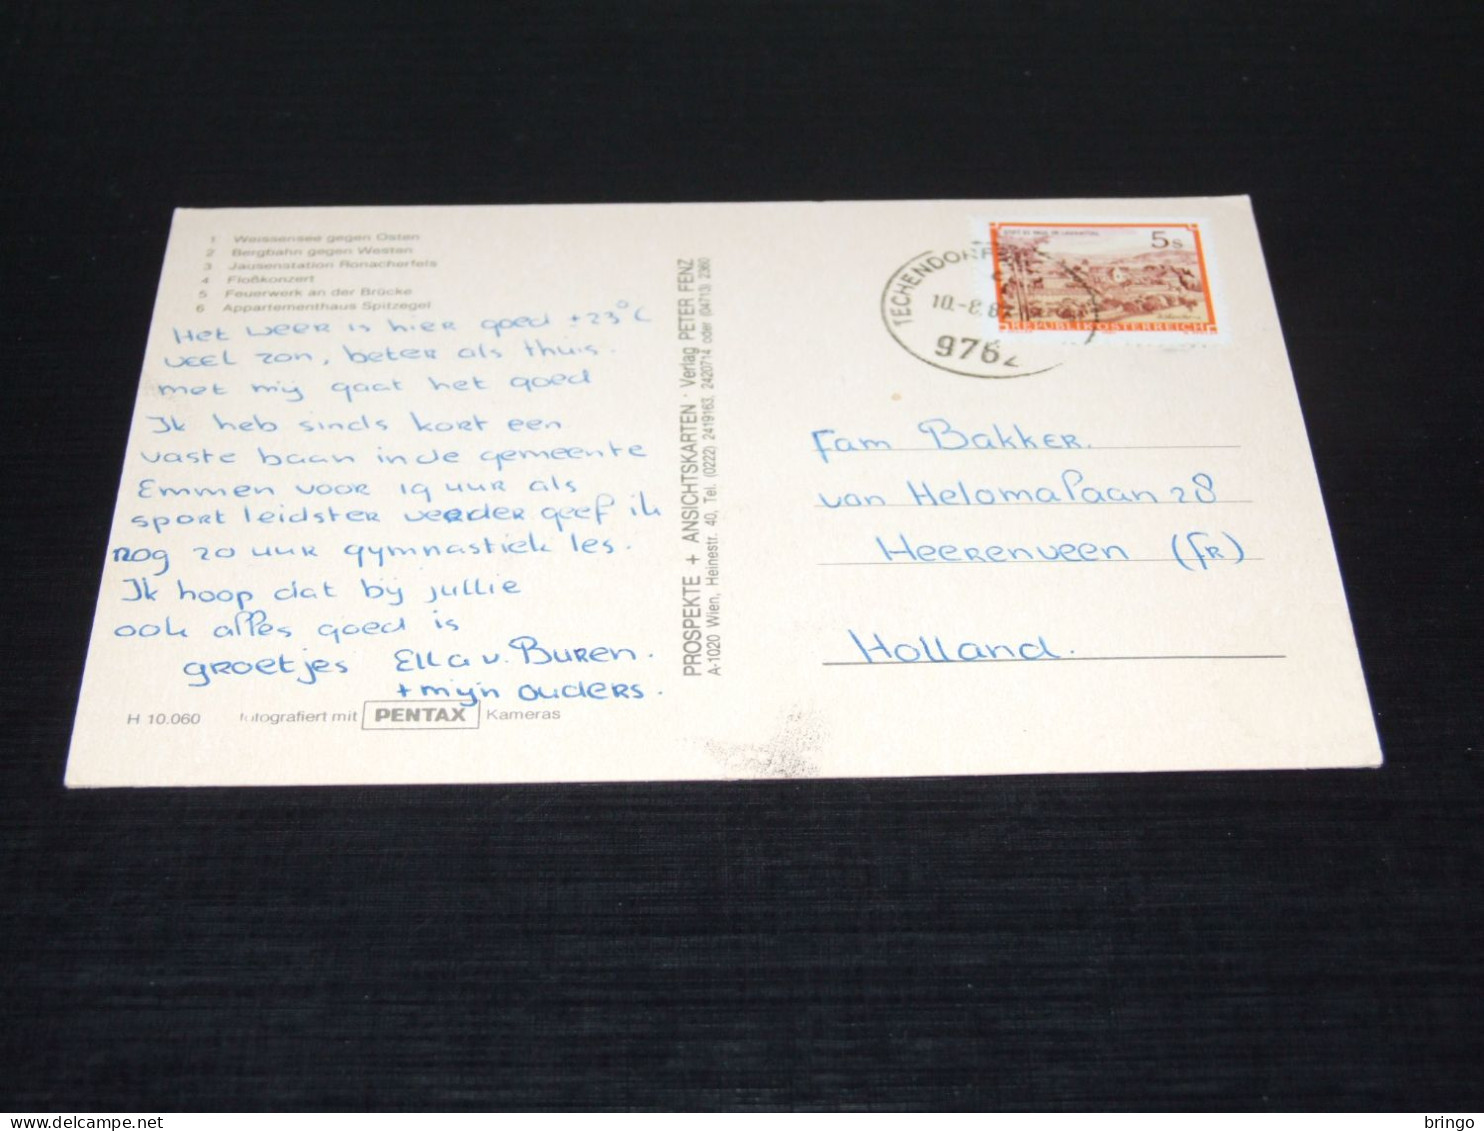 1 Weissensee gegen Osten
2 Bergbahn gegen Westen
3 Jausenstation Ronacherfels
4 Floßkonzert
5 Feuerwerk an der Brücke
6 Appartementhaus Spitzegel
Het weer is hier goed ±23°C
veel zon, beter als thuis.
met mij gaat het goed
Ik heb sinds kort een
vaste baan in de gemeente
Emmen voor 19 uur als
sportleidster verder geef ik
nog 20 uur gymnastiek les.
Ik hoop dat bij jullie
ook alles goed is
groetjes Ella v. Buren.
+ mijn ouders.
H 10.060 fotografiert mit PENTAX Kameras
PROSPEKTE + ANSICHTSKARTEN · Verlag PETER FENZ
A-1020 Wien, Heinestr. 40, Tel. (0222) 2419163, 2420714 oder (04713) 2360
TECHENDORF
10.-8.8
9762
5s
REPUBLIK ÖSTERREICH
Fam Bakker.
van Helomalaan 28
Heerenveen (FR)
Holland.
bringo